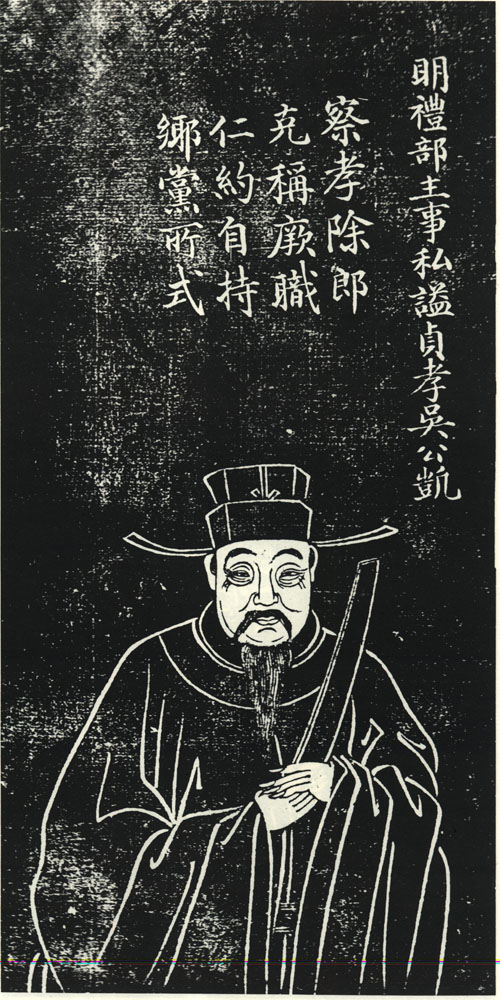 明禮部主事私謚貞孝吳公凱
察孝除郎
克稱厥職
仁約自持
鄉黨所式